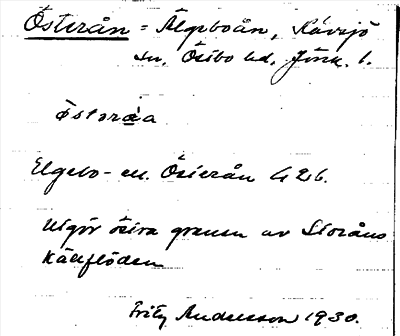 Österån = Älgeboån, Kävsjö
sn, Östbo hd, Jönk. l.
östərå̀a
Elgebo- ell. Österån G 26.
Utgör östra grenen av Storåns
källflöden
Fritz Andersson 1930.